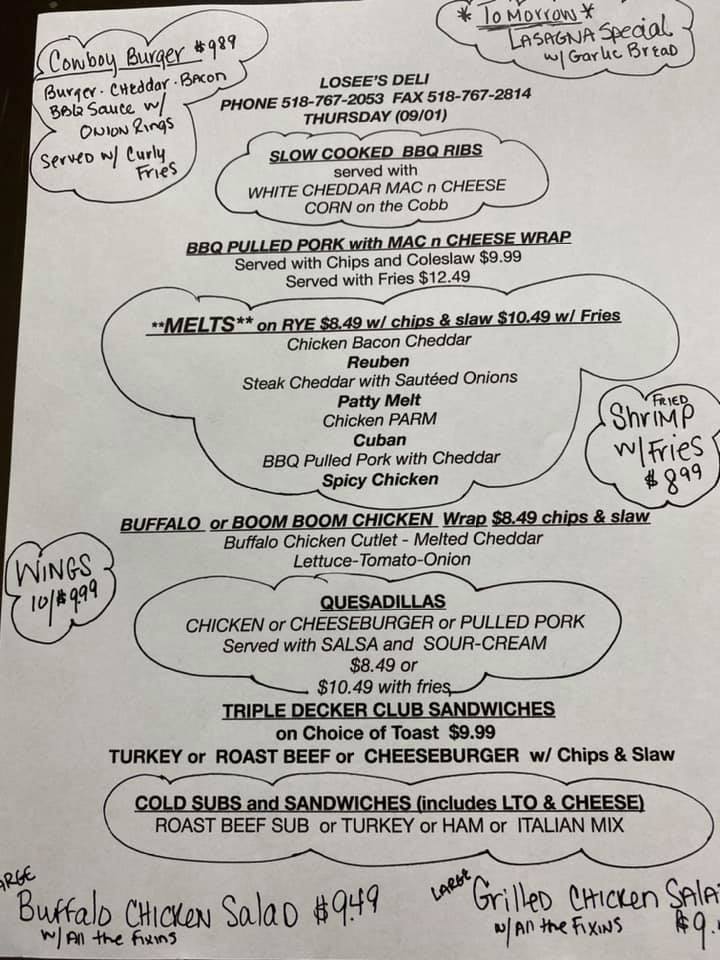 Cowboy Burger $9.89
Burger • Cheddar • Bacon
BBQ Sauce w/
Onion Rings
Served w/ Curly
Fries
* Tomorrow *
Lasagna Special
w/ Garlic Bread
LOSEE'S DELI
PHONE 518-767-2053 FAX 518-767-2814
THURSDAY (09/01)
SLOW COOKED BBQ RIBS
served with
WHITE CHEDDAR MAC n CHEESE
CORN on the Cobb
BBQ PULLED PORK with MAC n CHEESE WRAP
Served with Chips and Coleslaw $9.99
Served with Fries $12.49
**MELTS** on RYE $8.49 w/ chips & slaw $10.49 w/ Fries
Chicken Bacon Cheddar
Reuben
Steak Cheddar with Sautéed Onions
Patty Melt
Chicken PARM
Cuban
BBQ Pulled Pork with Cheddar
Spicy Chicken
Fried
Shrimp
w/ Fries
$8.99
BUFFALO or BOOM BOOM CHICKEN Wrap $8.49 chips & slaw
Buffalo Chicken Cutlet - Melted Cheddar
Lettuce-Tomato-Onion
Wings
10/$9.99
QUESADILLAS
CHICKEN or CHEESEBURGER or PULLED PORK
Served with SALSA and SOUR-CREAM
$8.49 or
$10.49 with fries
TRIPLE DECKER CLUB SANDWICHES
on Choice of Toast $9.99
TURKEY or ROAST BEEF or CHEESEBURGER w/ Chips & Slaw
COLD SUBS and SANDWICHES (includes LTO & CHEESE)
ROAST BEEF SUB or TURKEY or HAM or ITALIAN MIX
ARGE
Buffalo Chicken Salad $9.49
w/ All the Fixins
Large
Grilled Chicken Sala
w/ All the Fixins
$9.